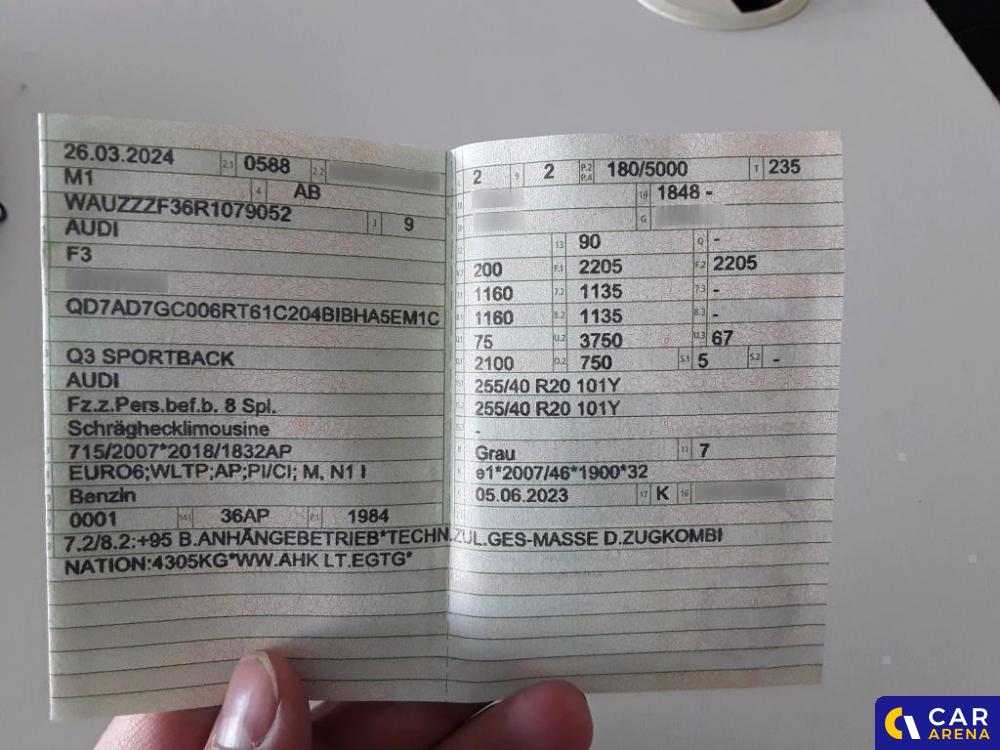 26.03.2024 2.1 0588 2.2
M1 4 AB
WAUZZZF36R1079052 3 9
AUDI
F3
QD7AD7GC006RT61C204BIBHA5EM1C
Q3 SPORTBACK
AUDI
Fz.z.Pers.bef.b. 8 Spl.
Schräghecklimousine
715/2007*2018/1832AP
EURO6;WLTP;AP;PI/CI; M, N1 I
Benzin
0001 14.1 36AP P.1 1984
L 2 9 2 P.2 P.4 180/5000 T 235
18 19 1848 -
20 G
12 13 90 Q -
V.7 200 F.1 2205 F.2 2205
7.1 1160 7.2 1135 7.3 -
8.1 1160 8.2 1135 8.3 -
U.1 75 U.2 3750 U.3 67
O.1 2100 O.2 750 S.1 5 S.2 -
15.1 255/40 R20 101Y
15.2 255/40 R20 101Y
15.3 -
R Grau 11 7
K e1*2007/46*1900*32
6 05.06.2023 17 K 16
7.2/8.2:+95 B.ANHÄNGEBETRIEB*TECHN.ZUL.GES-MASSE D.ZUGKOMBI
NATION:4305KG*WW.AHK LT.EGTG*
CAR
ARENA